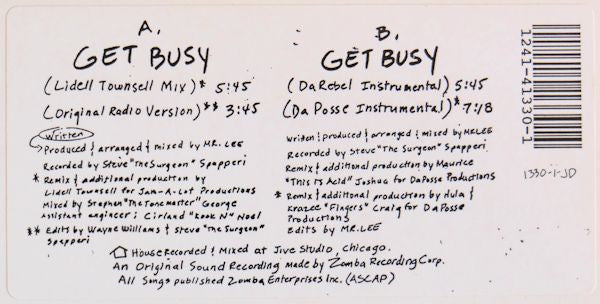 A.
GET BUSY
(Lidell Townsell Mix)* 5:45
(Original Radio Version)** 3:45
Written
Produced & arranged & mixed by MR. LEE
Recorded by Steve "The Surgeon" Spapperi
* Remix & additional production by
Lidell Townsell for Jam-A-Lot Productions
Mixed by Stephen "The Tonemaster" George
Assistant engineer: Cirland "Kook N" Noel
** Edits by Wayne Williams & Steve "The Surgeon"
Spapperi
B.
GET BUSY
(DaRebel Instrumental) 5:45
(Da Posse Instrumental)* 7:18
Written & produced & arranged & mixed by MR.LEE
Recorded by Steve "The Surgeon" Spapperi
Remix & additional production by Maurice
"This Is Acid" Joshua for DaPosse Productions
* Remix & additional production by Hula &
KraZee "Fingers" Craig for Da Posse
Productions
Edits by MR.LEE
House Recorded & Mixed at Jive Studio, Chicago.
An Original Sound Recording made by Zomba Recording Corp.
All Songs published Zomba Enterprises Inc. (ASCAP)
1241-41330-1
1330-1-JD